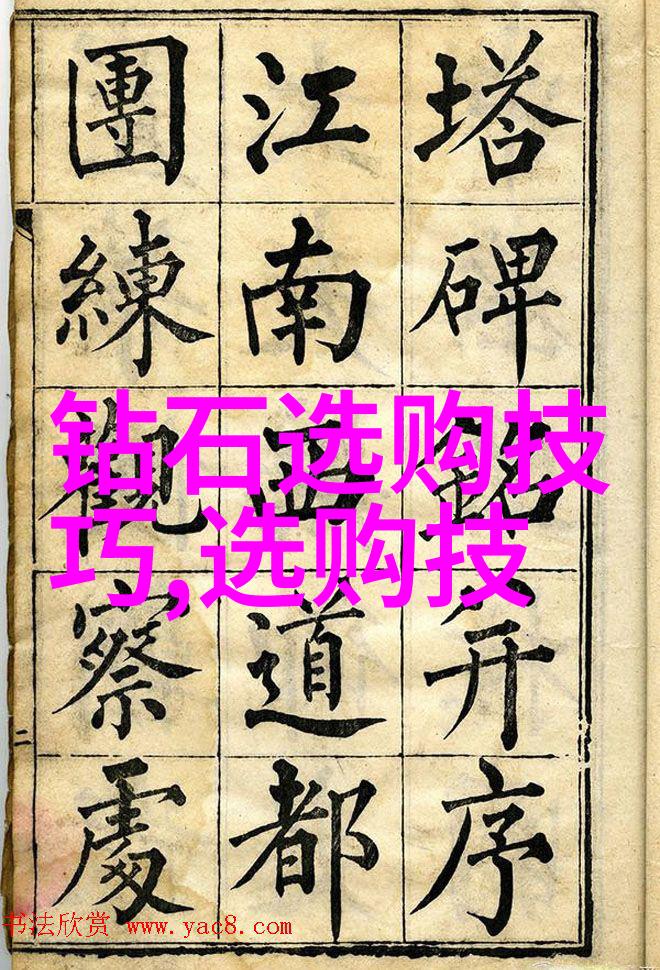 塔碑銘并序
江南西道都
團練觀察處
二
钻石选购技
巧,选购技
书法欣赏 www.yac8.com